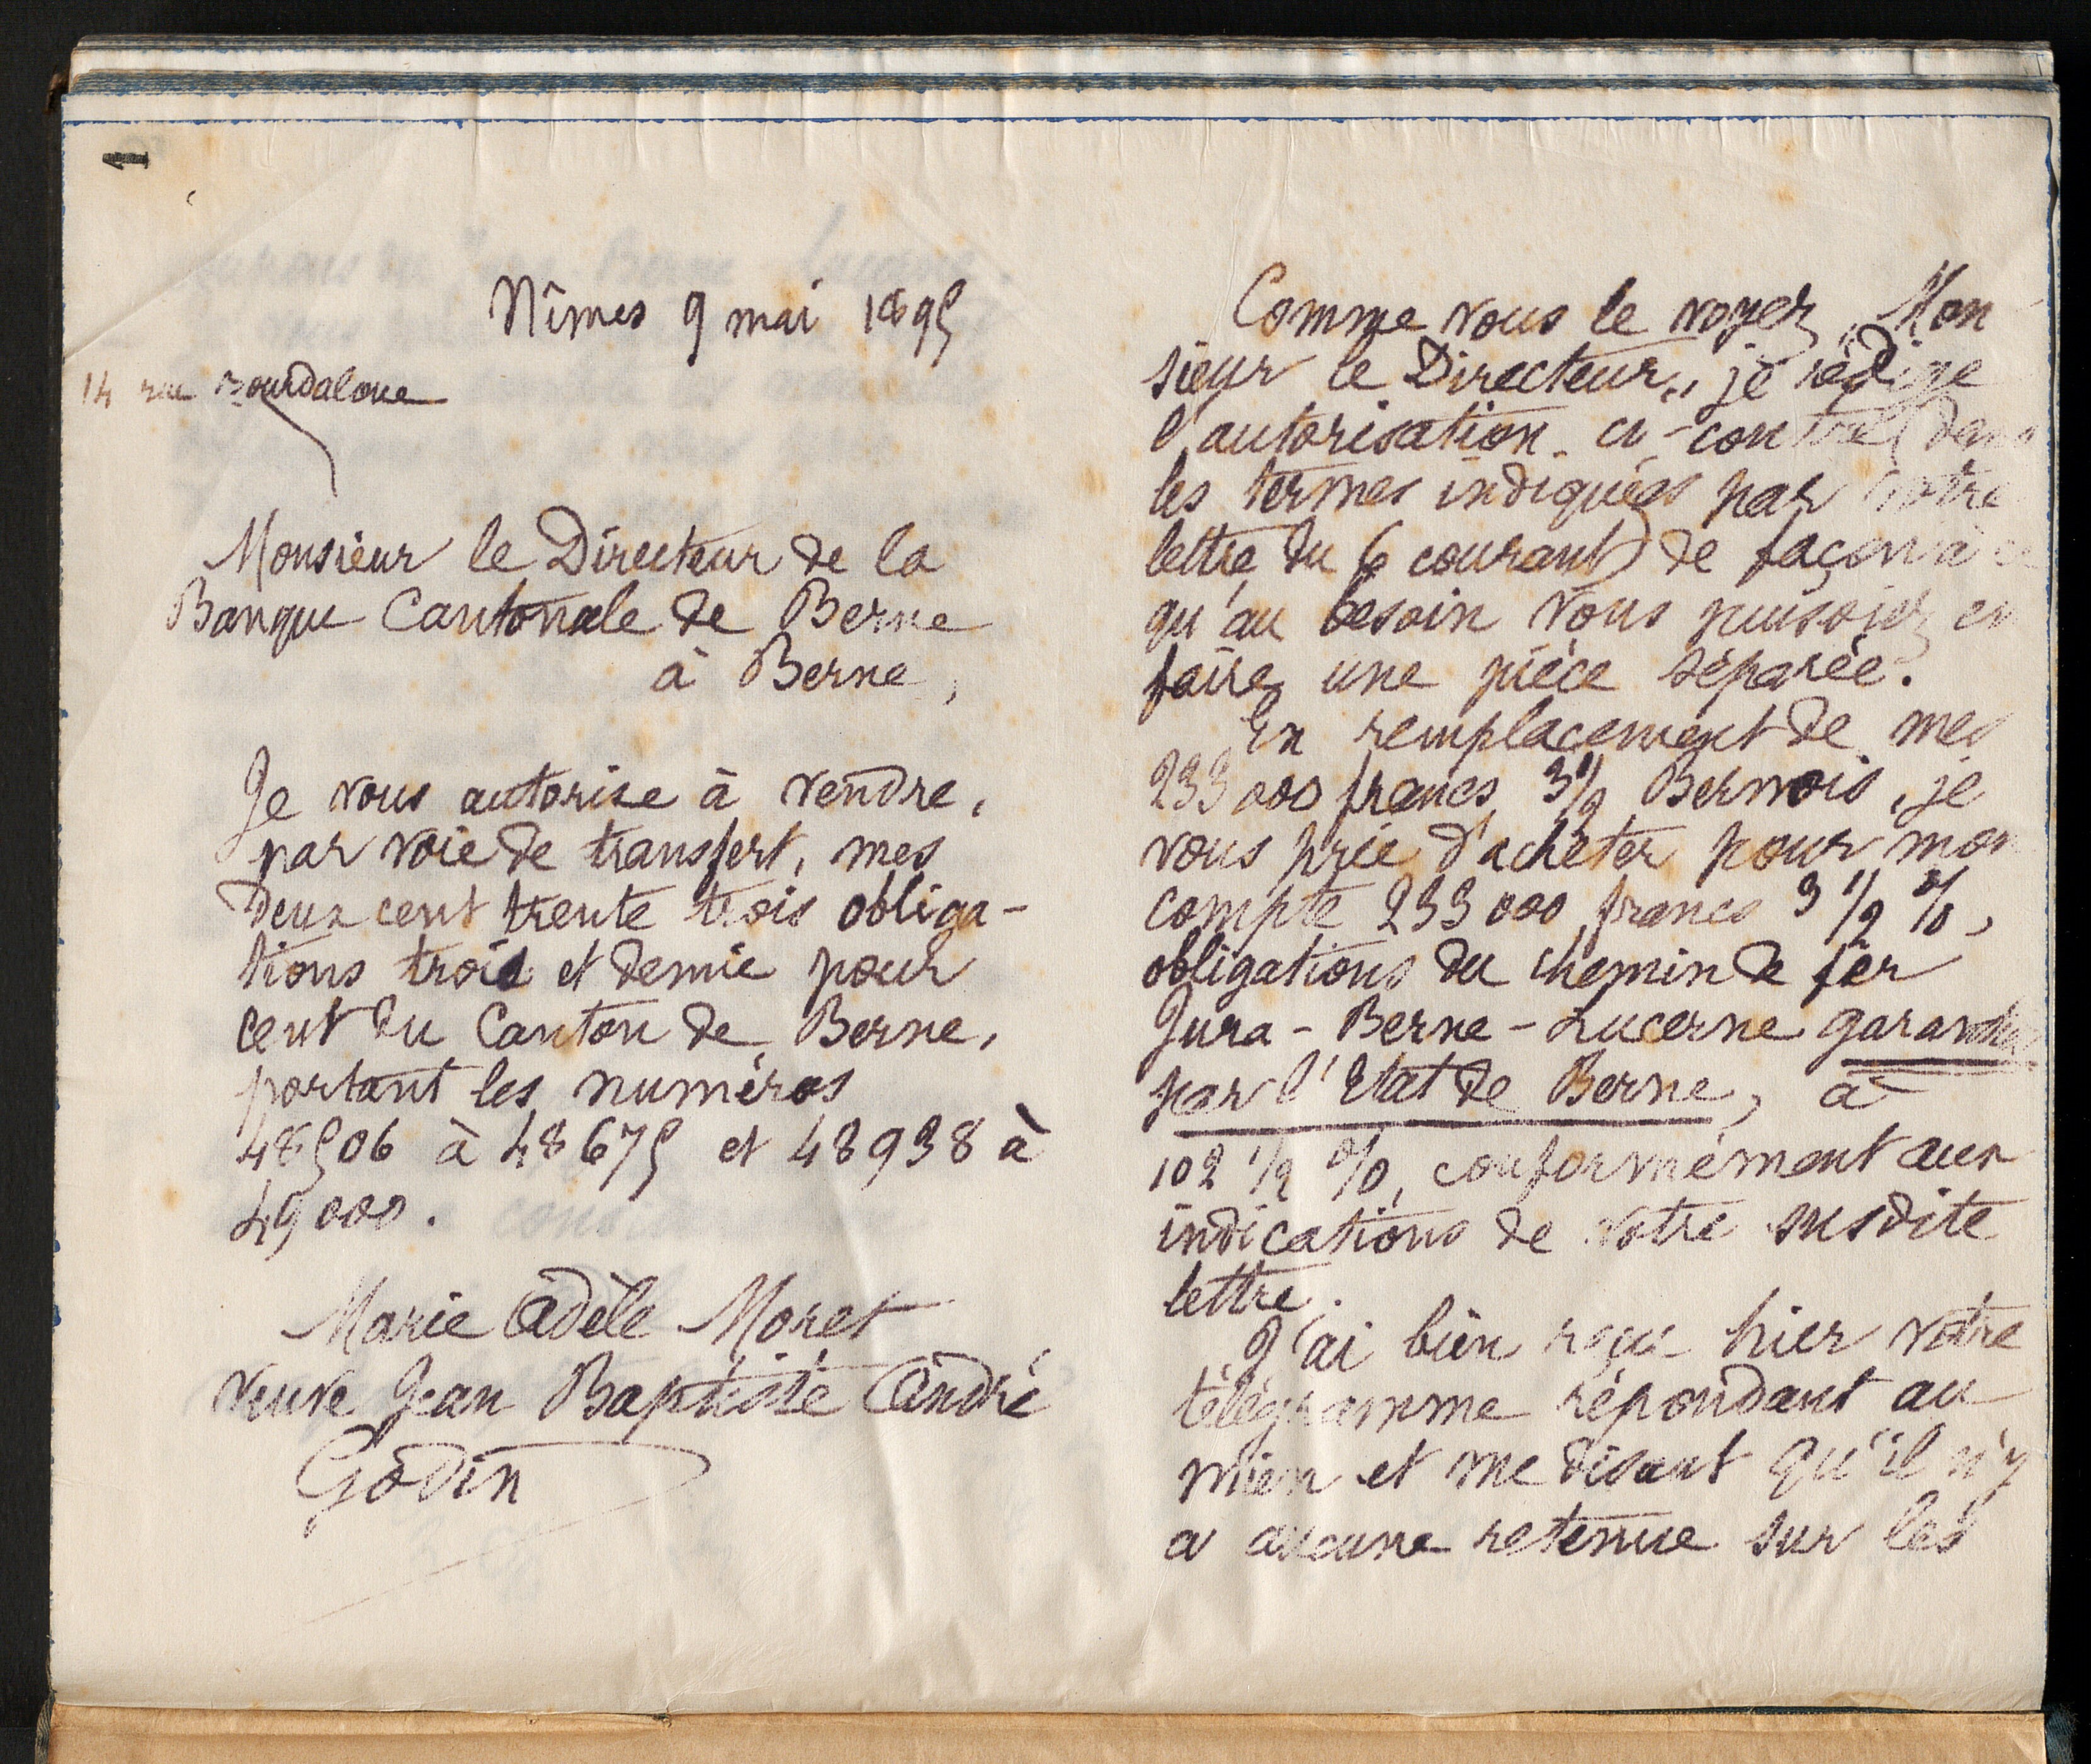 1
Nîmes 9 mai 1895
14 rue Bourdaloue
Monsieur le Directeur de la
Banque Cantonale de Berne
à Berne,
Je vous autorise à vendre,
par voie de transfert, mes
deux cent trente trois obliga-
tions trois et demie pour
cent du Canton de Berne,
portant les numéros
48506 à 48675 et 48938 à
49000.
Marie Adèle Moret
veuve Jean Baptiste André
Godin
Comme vous le voyez, Mon
sieur le Directeur, je rédige
l'autorisation ci-contre (dans
les termes indiqués par votre
lettre du 6 courant) de façon à ce
qu'au besoin vous puissiez en
faire une pièce séparée.
En remplacement de mes
233000 francs 3 1/2 Bernois, je
vous prie d'acheter pour mon
compte 233000 francs 3 1/2 %,
obligations du chemin de fer
Jura-Berne-Lucerne garanties
par l'Etat de Berne, à
102 1/2 %, conformément aux
indications de votre susdite
lettre.
J'ai bien reçu hier votre
télégramme répondant au
mien et me disant qu'il n'y
a aucune retenue sur les